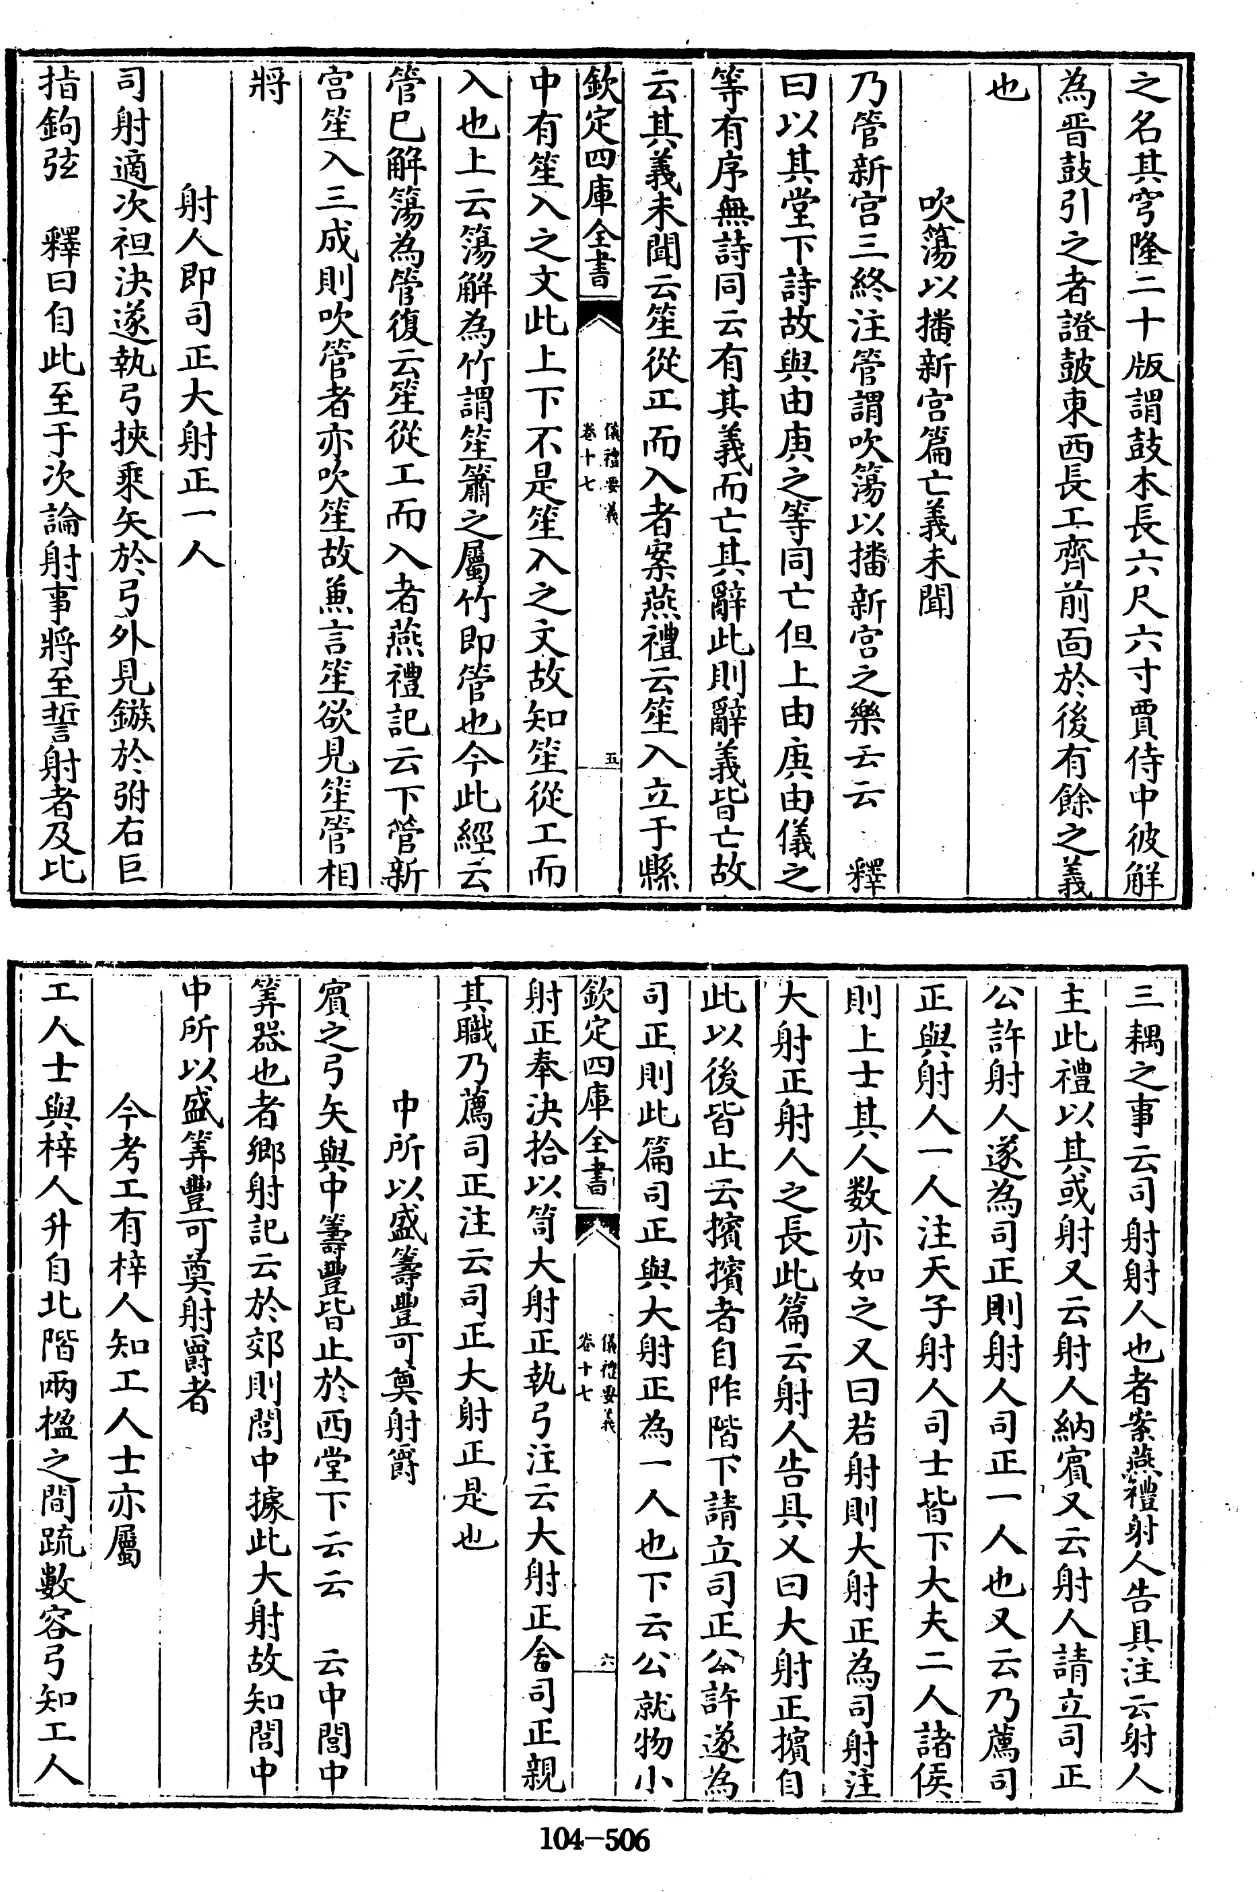 之名其穹隆二十版謂鼓木長六尺六寸賈侍中彼解
為晋鼓引之者證鼓東西長工齊前面於後有餘之義
也
吹蕩以播新宫篇亡義未聞
乃管新宫三終注管謂吹簜以播新宫之樂云云 釋
曰以其堂下詩故與由庚之等同亡但上由庚由儀之
等有序無詩同云有其義而亡其辭此則辭義皆亡故
云其義未聞云笙從工而入者案燕禮云笙入立于縣
欽定四庫全書
儀禮要義
卷十七
五
中有笙入之文此上下不是笙入之文故知笙從工而
入也上云簜解為竹謂笙簫之屬竹即管也今此經云
管已解簜為管復云笙從工而入者燕禮記云下管新
宫笙入三成則吹管者亦吹笙故魚言笙欲見笙管相
將
射人即司正大射正一人
司射適次袒決遂執弓挾乘矢於弓外見鏃於弣右巨
指鉤弦 釋曰自此至于次論射事將至誓射者及比
三耦之事云司射射人也者案燕禮射人告具注云射人
主此禮以其或射又云射人納賓又云射人請立司正
公許射人遂為司正則射人司正一人也又云乃薦司
正與射人一人注天子射人司士皆下大夫二人諸侯
則上士其人數亦如之又曰若射則大射正為司射注
大射正射人之長此篇云射人告具又曰大射正擯自
此以後皆止云擯擯者自阼階下請立司正公許遂為
司正則此篇司正與大射正為一人也下云公就物小
欽定四庫全書
儀禮要義
卷十七
六
射正奉決拾以笥大射正執弓注云大射正舍司正親
其職乃薦司正注云司正大射正是也
中所以盛籌豐可奠射爵
賓之弓矢與中籌豐皆止於西堂下云云 云中閭中
筭器也者鄉射記云於郊則閭中據此大射故知閭中
中所以盛筭豐可奠射爵者
今考工有梓人知工人士亦屬
工人士與梓人升自北階兩楹之間疏數容弓知工人
104-506